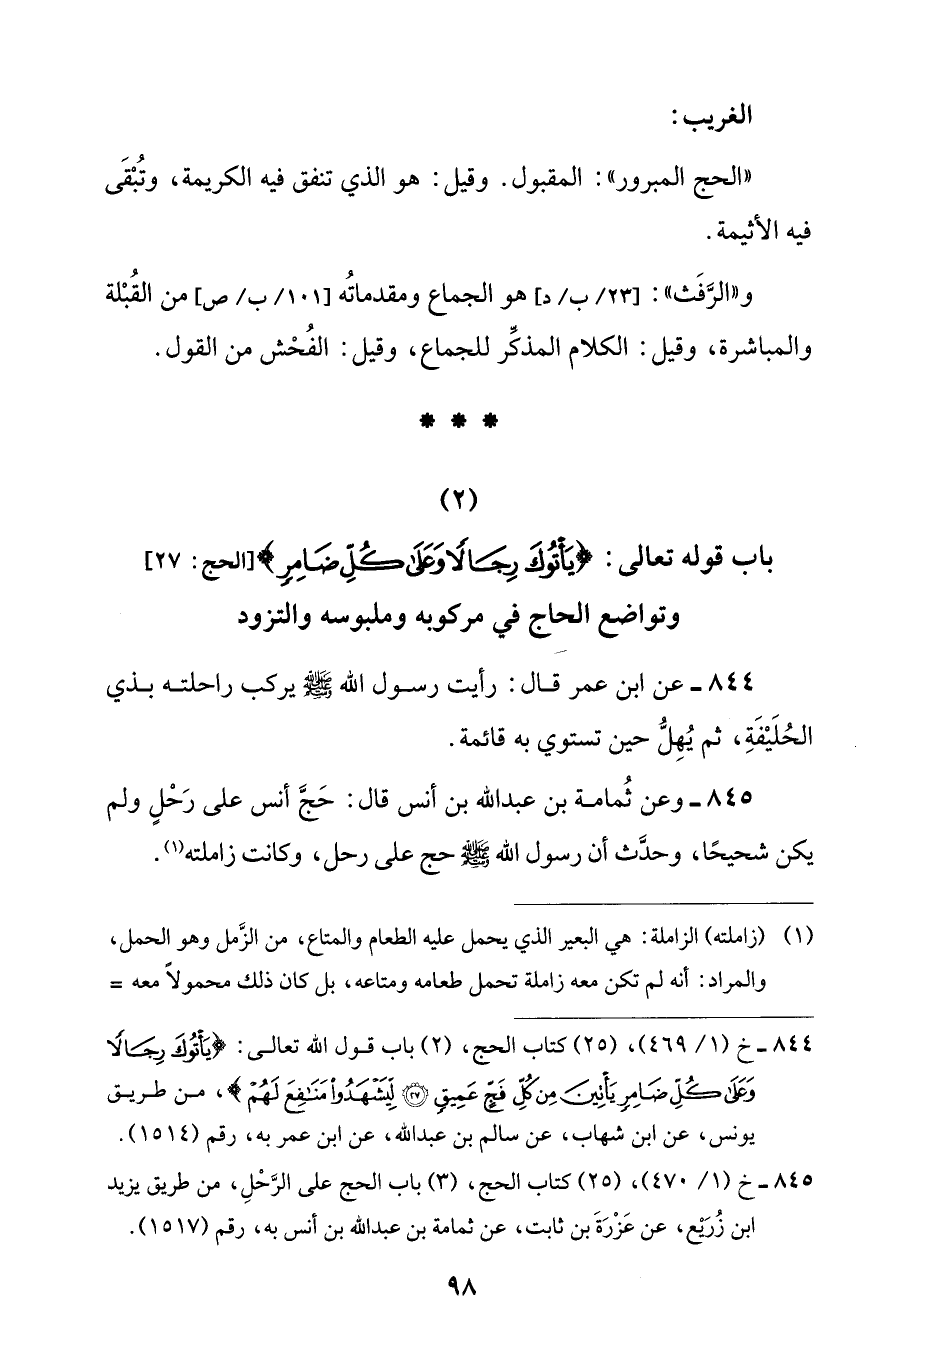 الغريب:
«الحج المبرور»: المقبول. وقيل: هو الذي تنفق فيه الكريمة، وتُبْقَى
فيه الأثيمة.
و«الرَّفَث»: [٢٣/ ب/ د] هو الجماع ومقدماتُه [١٠١/ ب/ ص] من القُبْلة
والمباشرة، وقيل: الكلام المذكِّر للجماع، وقيل: الفُحْش من القول.
* * *
(٢)
باب قوله تعالى: ﴿يَأْتُوكَ رِجَالًا وَعَلَىٰ كُلِّ ضَامِرٍ﴾ [الحج: ٢٧]
وتواضع الحاج في مركوبه وملبوسه والتزود
٨٤٤ - عن ابن عمر قال: رأيت رسول الله ﷺ يركب راحلته بذي
الحُلَيْفَةِ، ثم يُهِلُّ حين تستوي به قائمة.
٨٤٥ - وعن ثُمامة بن عبدالله بن أنس قال: حَجَّ أنس على رَحْلٍ ولم
يكن شحيحًا، وحدَّث أن رسول الله ﷺ حج على رحل، وكانت زاملته(١).
(١) (زاملته) الزاملة: هي البعير الذي يحمل عليه الطعام والمتاع، من الزَّمل وهو الحمل،
والمراد: أنه لم تكن معه زاملة تحمل طعامه ومتاعه، بل كان ذلك محمولاً معه =
٨٤٤ - خ (١/ ٤٦٩)، (٢٥) كتاب الحج، (٢) باب قول الله تعالى: ﴿يَأْتُوكَ رِجَالًا
وَعَلَىٰ كُلِّ ضَامِرٍ يَأْتِينَ مِن كُلِّ فَجٍّ عَمِيقٍ ۝٢٧ لِّيَشْهَدُوا مَنَافِعَ لَهُمْ﴾، من طريق
يونس، عن ابن شهاب، عن سالم بن عبدالله، عن ابن عمر به، رقم (١٥١٤).
٨٤٥ - خ (١/ ٤٧٠)، (٢٥) كتاب الحج، (٣) باب الحج على الرَّحْلِ، من طريق يزيد
ابن زُرَيْع، عن عَزْرَةَ بن ثابت، عن ثمامة بن عبدالله بن أنس به، رقم (١٥١٧).
٩٨